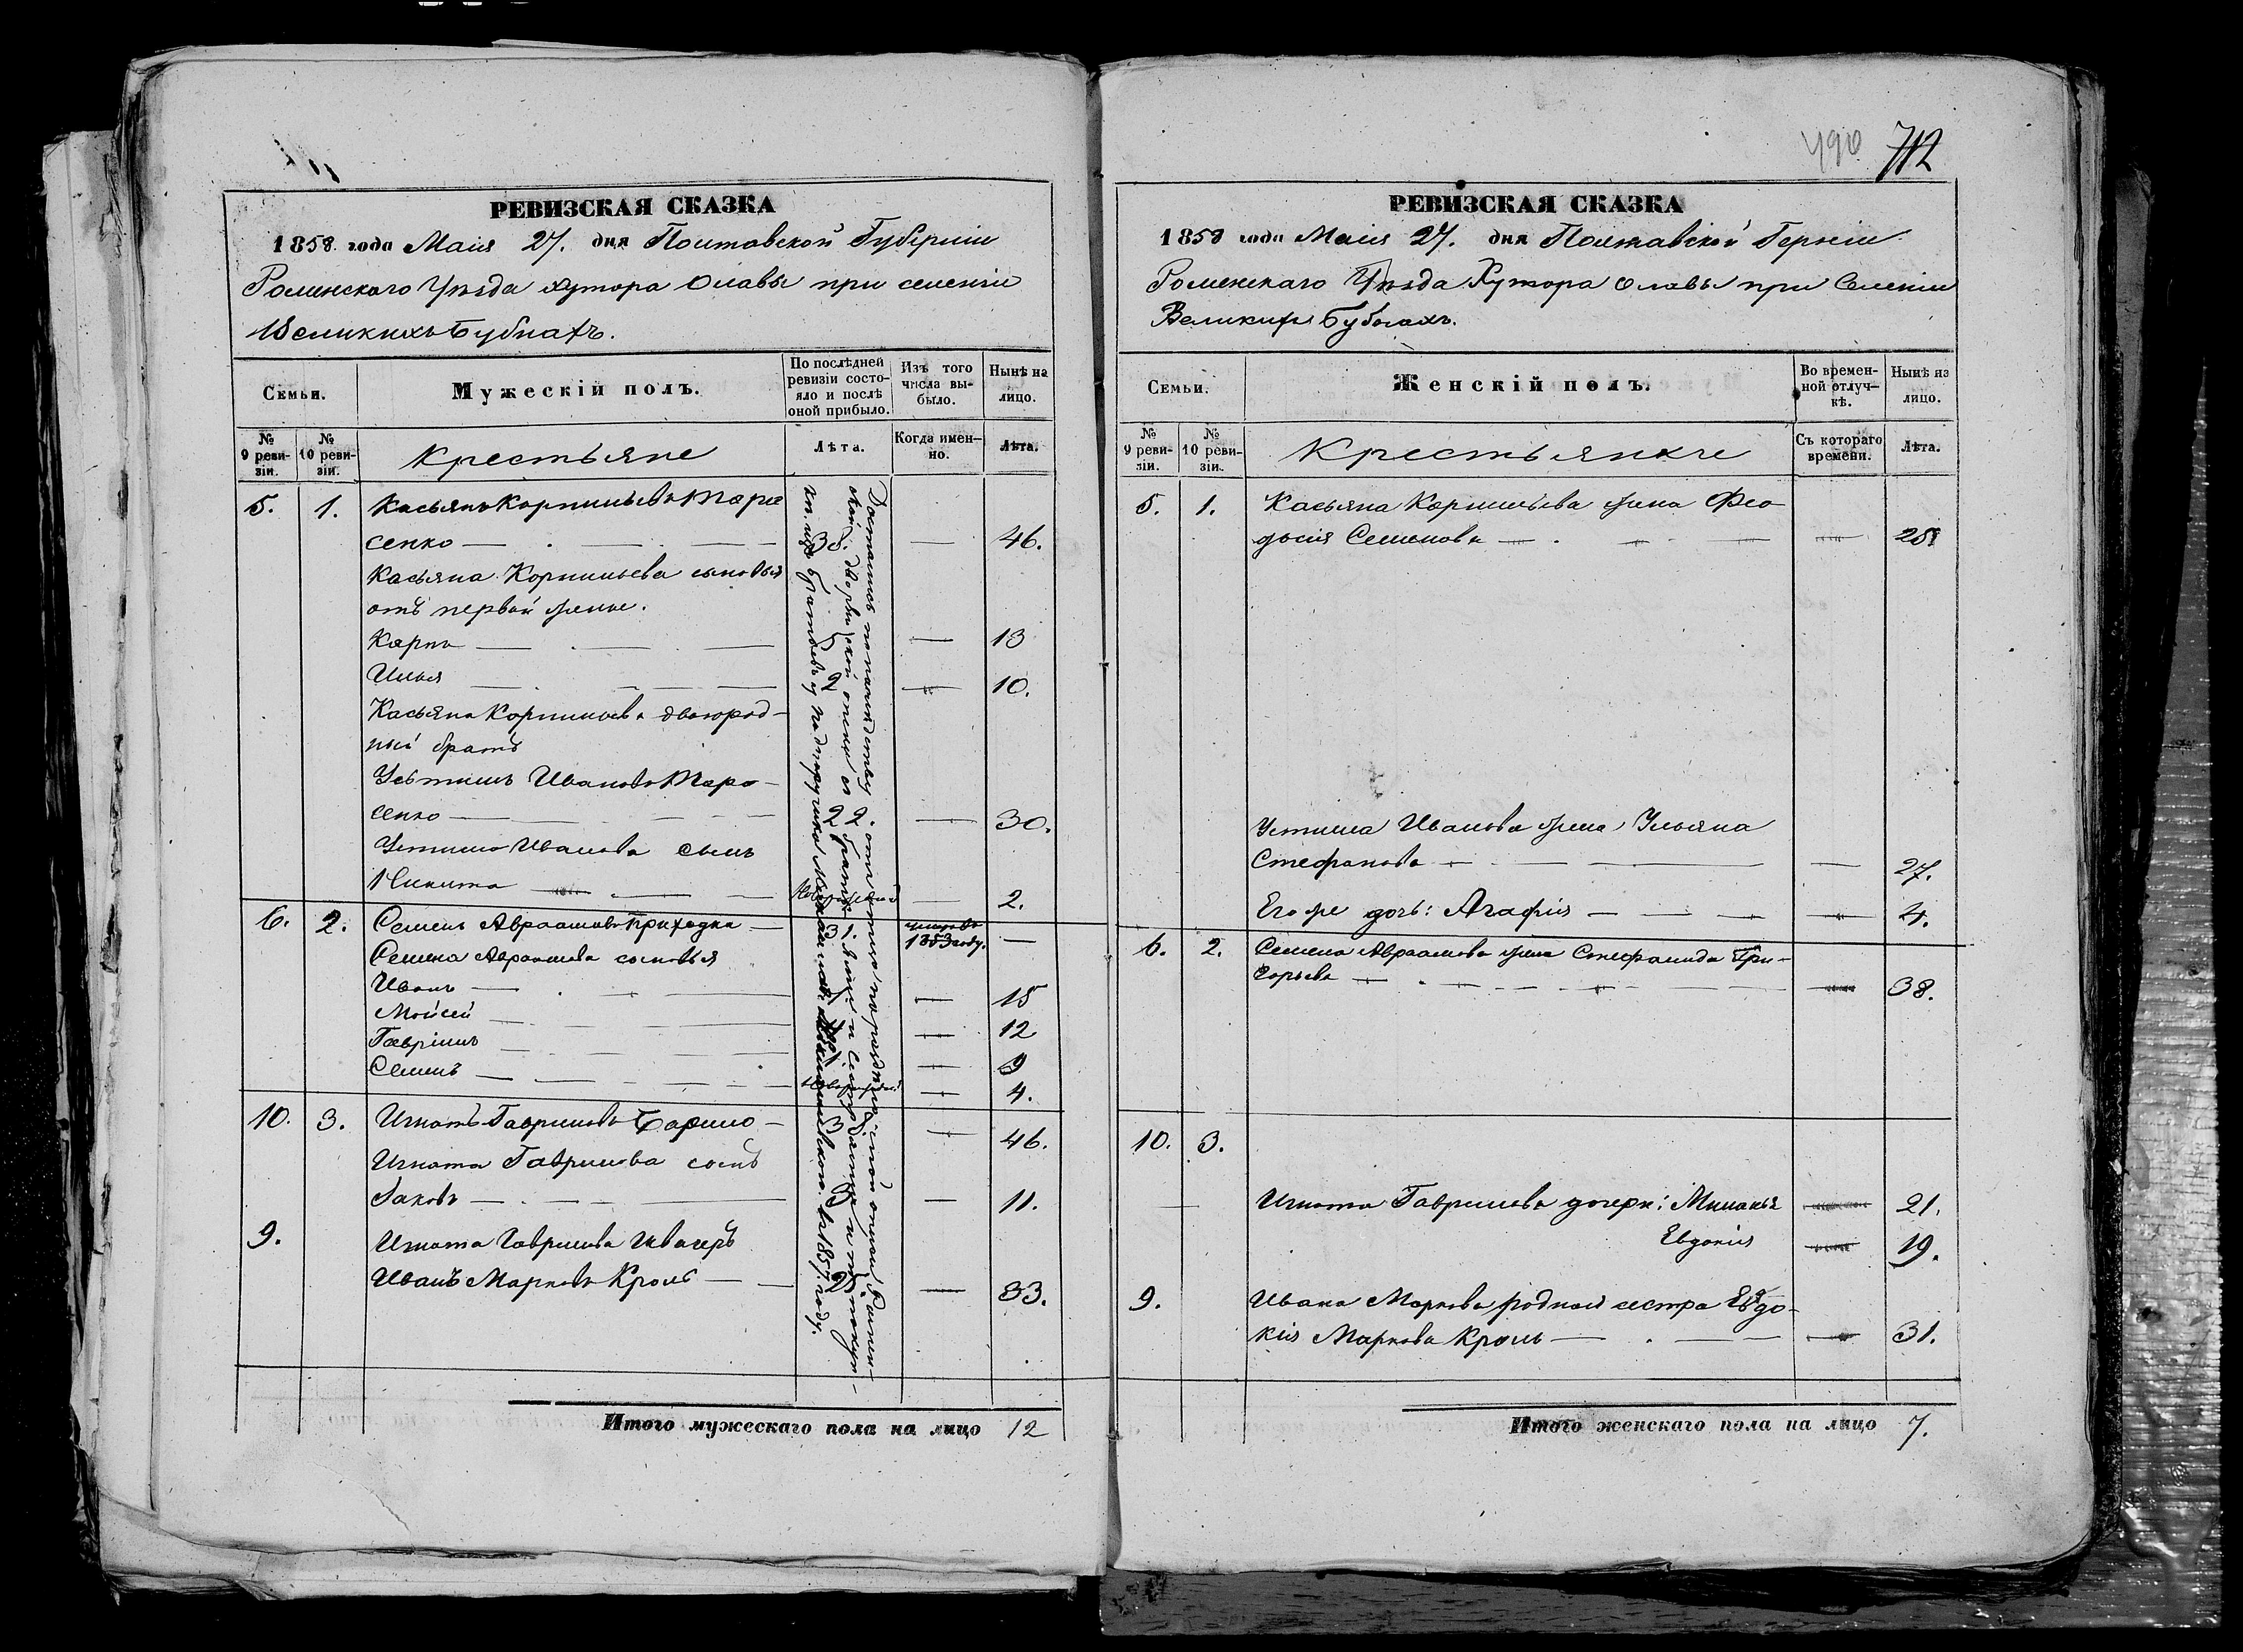 РЕВИЗСКАЯ СКАЗКА
1858 года Маія 27. дня Полтавской Губерніи
Роменскаго Уѣзда хутора Олавы при селеніи
Великихъ Бубнахъ.
Семьи.
Мужескій полъ.
По послѣдней ревизіи состояло и послѣ оной прибыло.
Изъ того числа выбыло.
Нынѣ на лицо.
№ 9 ревизіи.
№ 10 ревизіи.
Крестьяне
Лѣта.
Когда именно.
Лѣта.
5. 1. Касьянъ Корнильевъ Тара
сенко 38. 46.
Касьяна Корнильева сыновья
отъ первой жены.
Карпъ 5 13
Илья 2 10.
Касьяна Корнильева двоюрод-
ный братъ
Устимъ Ивановъ Тара-
сенко 22. 30.
Устима Иванова сынъ
Никита новорожденный 2.
6. 2. Семенъ Авраамовъ Приходка 31. умеръ въ 1853 году.
Семена Авраамова сыновья
Иванъ 15
Мойсей 12
Гавріилъ 9
Семенъ новорожденный 4.
10. 3. Игнатъ Гавриловъ 38. 46.
Игната Гаврилова сынъ
Яковъ 3 11.
9. Игната Гаврилова швагеръ
Иванъ Марковъ Кроль 33.
Итого мужескаго пола на лицо 12
490 712
РЕВИЗСКАЯ СКАЗКА
1858 года Маія 27. дня Полтавской Герніи
Роменскаго Уѣзда Хутора Олавы при Селеніи
Великихъ Бубнахъ.
Семьи.
Женскій полъ.
Во временной отлучкѣ.
Нынѣ на лицо.
№ 9 ревизіи.
№ 10 ревизіи.
Крестьянки
Съ котораго времени.
Лѣта.
5. 1. Касьяна Корнильева жена Фео-
досія Семенова 28
Устима Иванова жена Ульяна
Стефанова 27.
Его же дочь: Агафія 4.
6. 2. Семена Авраамова жена Стефанида Гри-
горьева 38.
10. 3.
Игната Гаврилова дочери: Миланья 21.
Евдокія 19.
9. Ивана Маркова родная сестра Евдо-
кія Маркова Кроль 31.
Итого женскаго пола на лицо 7.